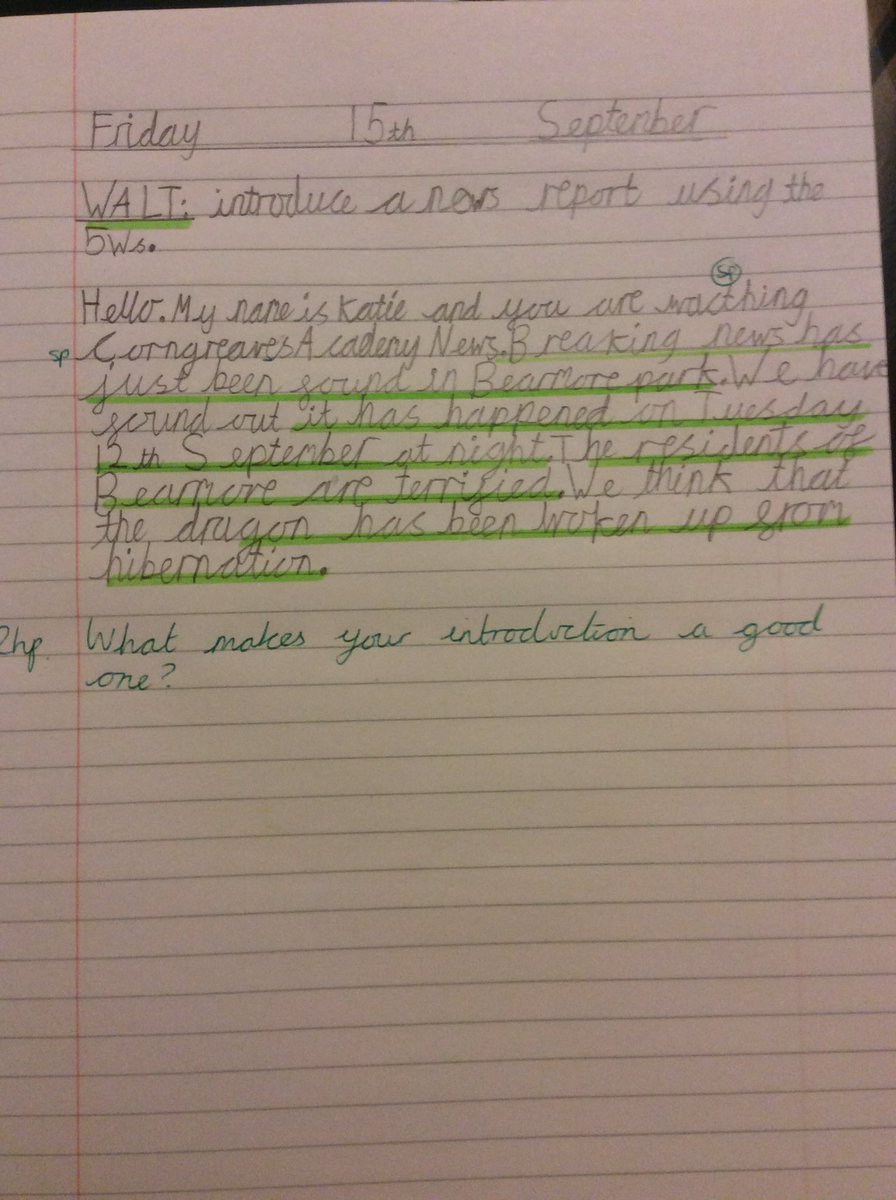 Friday 15th September
WALT: introduce a news report using the
5Ws.
sp
Hello. My name is Katie and you are wacthing
sp Corngreaves Academy News. Breaking news has
just been found in Bearmore park. We have
found out it has happened on Tuesday
12th September at night. The residents of
Bearmore are terrified. We think that
the dragon has been woken up from
hibernation.
What makes your introduction a good
one?